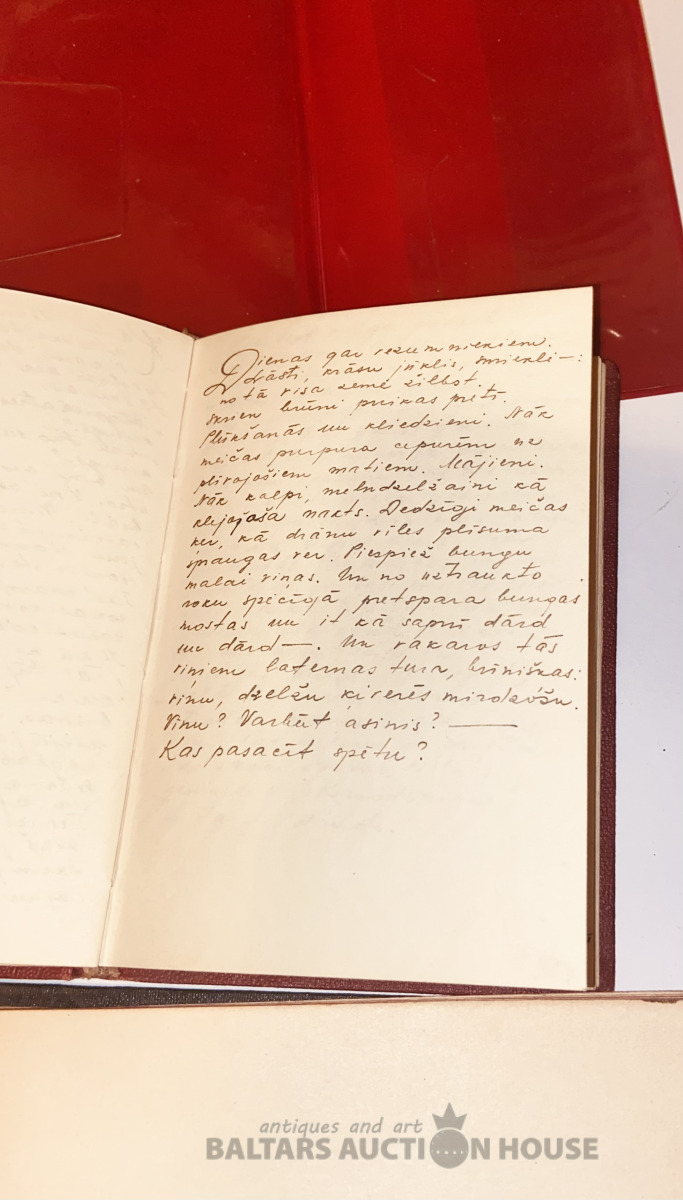 Dienas gar vezumniekiem.
Drāsti, krāsu jūklis, smiekli—:
no tā visa zemē žilbst.
Skrien brūni puikas pretī.
Plūkšanās un kliedzieni. Nāk
meičas purpura cepurēm uz
plivojošiem matiem. Mājieni.
Nāk kalpi, melndzelžaini kā
klejojoša nakts. Dedzīgi meičas
ker, kā drānu viles plīsuma
spraugas ver. Piespiež bungu
malai viņas. Un no uztraukto
roku spēcīgā pretspara bungas
mostas un it kā sapnī dārd
un dārd—. Un vakaros tās
viņiem laternas tura, brīnišķas:
vīnu, dzelžu ķiverēs mirdzošu.
Vīnu? Varbūt asinis? —
Kas pasacīt spētu?
antiques and art
BALTARS AUCTION HOUSE